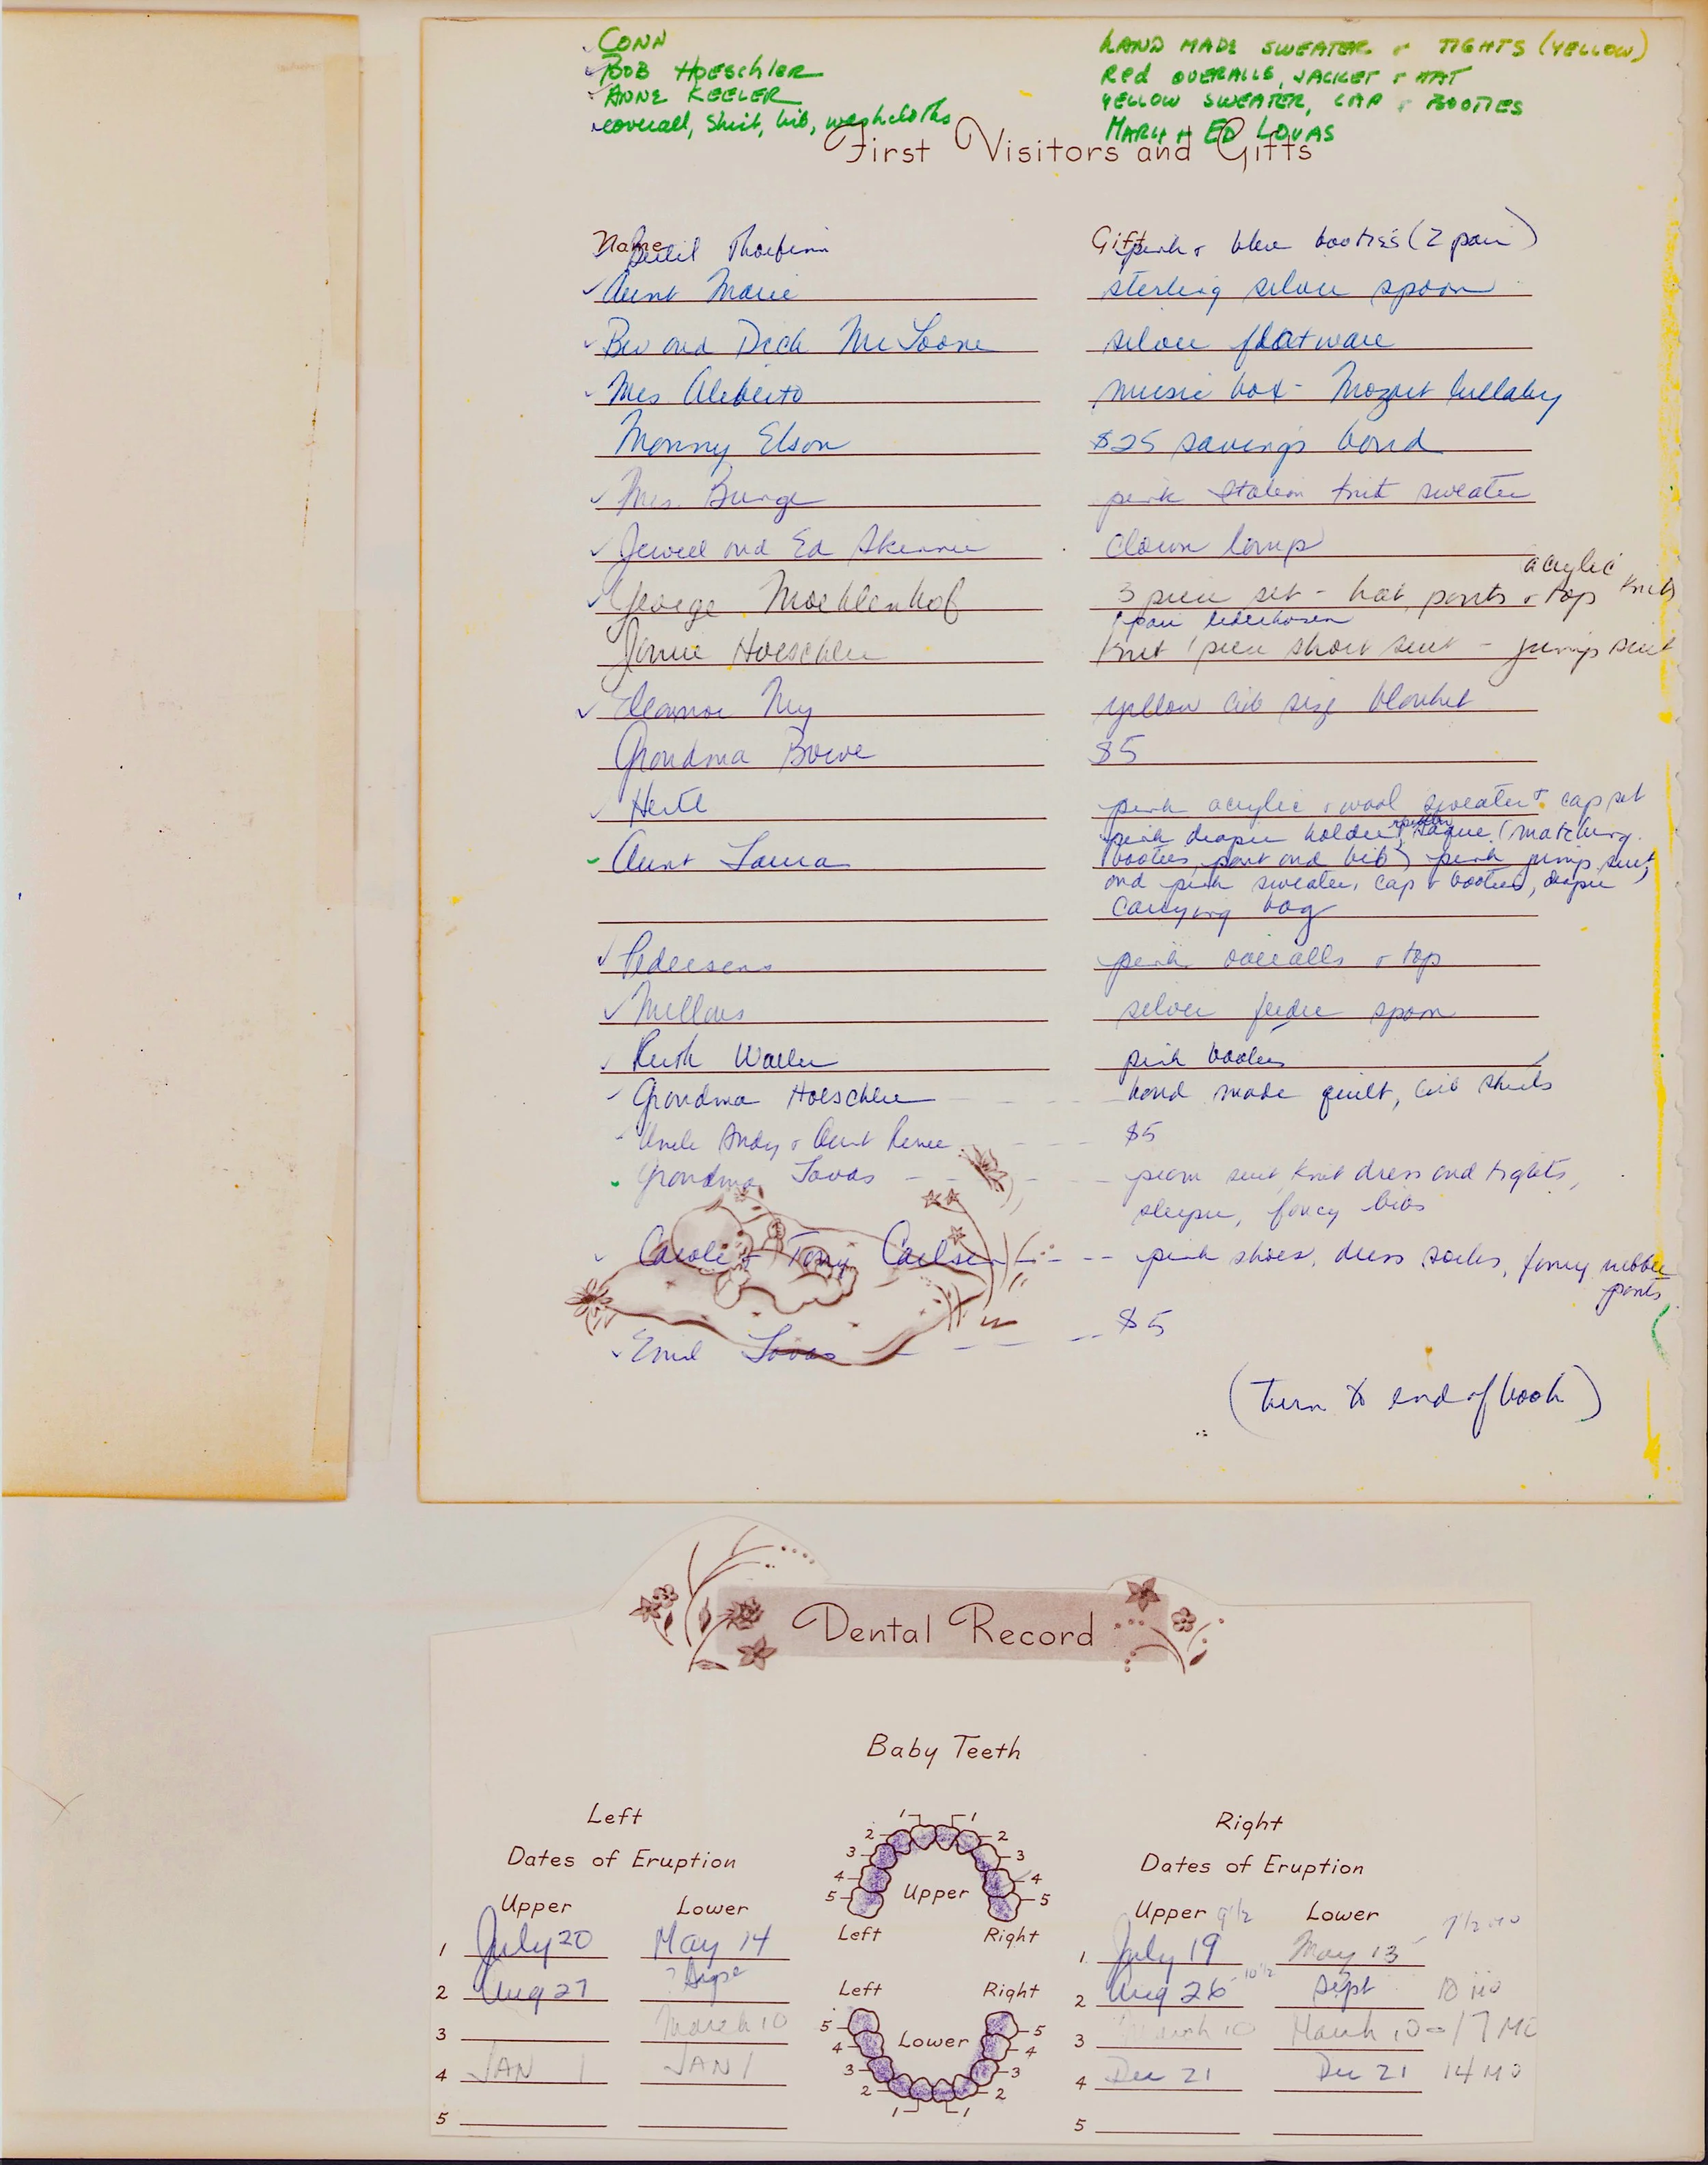 CONN HAND MADE SWEATER + TIGHTS (YELLOW)
BOB HOESCHLER Red OVERALLS, JACKET + HAT
ANNE KEELER YELLOW SWEATER, CAP + BOOTIES
coverall, shirt, bib, washcloths MARY + ED LOVAS
First Visitors and Gifts
Name Gift
pink + blue booties (2 pair)
Aunt Marie sterling silver spoon
Bev and Dick McLoone silver flatware
Mrs Aliberto music box - Mozart lullaby
Monny Elson $25 savings bond
Mrs. Bunge pink Italian knit sweater
Jewel and Ed clown lamp
acrylic
George Moehlenhof 3 piece set - hat, pants + top knits
1 pair lederhosen
Hoeschler knit 1 piece short suit - jump suit
Eleanor Ny yellow crib size blanket
Grandma Bowe $5
pink acrylic + wool sweater + cap set
pink diaper holder, (matching
Aunt Laura booties, pant and bib) pink jump suit,
and pink sweater, cap + booties, diaper
carrying bag
Pedersens pink overalls + top
silver feeder spoon
Ruth pink booties
Grandma Hoeschler hand made quilt, crib sheets
Uncle Andy + Aunt Renee $5
Grandma Lovas pram suit, knit dress and tights,
sleeper, fancy bibs
Carole + Tony Carlsen pink shoes, dress socks, fancy rubber
pants
Lovas $5
(turn to end of book)
Dental Record
Baby Teeth
Left
Dates of Eruption
Upper Lower
1 July 20 May 14
2 Aug 27 ?
3 March 10
4 JAN 1 JAN 1
5
1 1
2 2
3 3
4 4
5 Upper 5
Left Right
Left Right
5 5
4 Lower 4
3 3
2 2
1 1
Right
Dates of Eruption
Upper 9 1/2 Lower 7 1/2 MO
1 July 19 May 13
2 Aug 26 - 10 1/2 Sept 10 MO
3 March 10 March 10 - 17 MO
4 Dec 21 Dec 21 14 MO
5